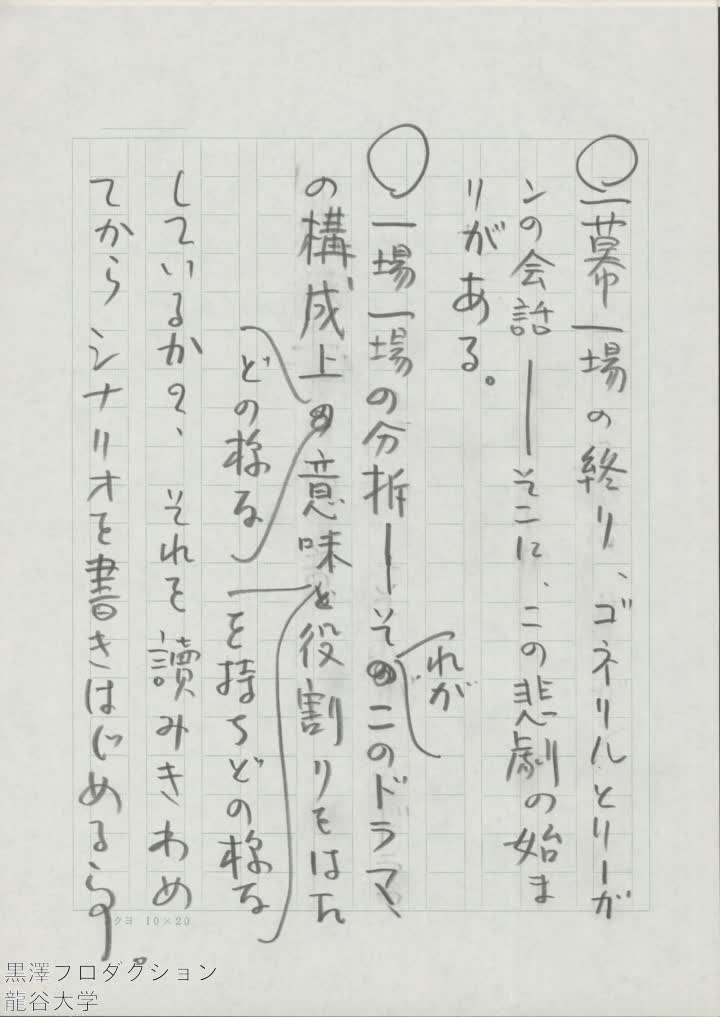 〇一幕一場の終り、ゴネリルとリーガ
ンの会話――そこに、この悲劇の始ま
りがある。
〇一場一場の分析――そ
れが
このドラマ、
の構成上
どの様な
意味
を持ちどの様な
役割りをはた
しているか？、それを讀みきわめ
てからシナリオを書きはじめる
コクヨ 10×20
黒澤プロダクション
龍谷大学